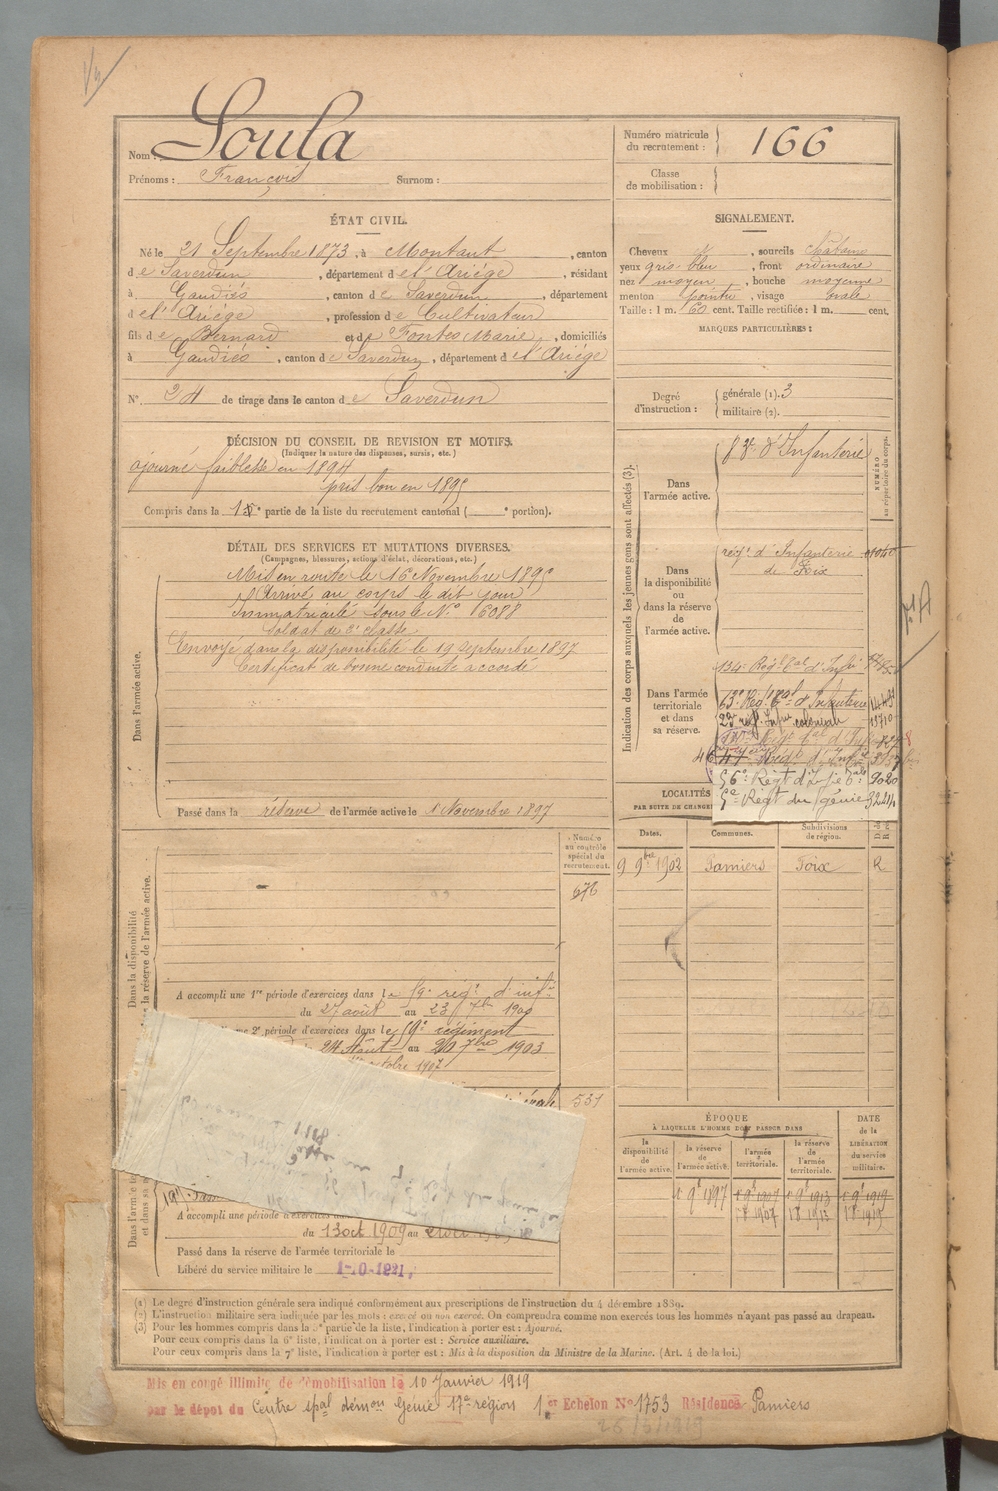 Nom : Soula
Prénoms : François Surnom :
Numéro matricule du recrutement : 166
Classe de mobilisation :
ÉTAT CIVIL.
Né le 21 Septembre 1873, à Montaut, canton
de Saverdun, département de l'Ariége, résidant
à Gaudiés, canton de Saverdun, département
de l'Ariége, profession de Cultivateur
fils de Bernard et de Fontes Marie, domiciliés
à Gaudiés, canton de Saverdun, département de l'Ariége
N° 24 de tirage dans le canton de Saverdun
SIGNALEMENT.
Cheveux , sourcils châtains
yeux gris-bleu, front ordinaire
nez moyen, bouche moyenne
menton pointu, visage ovale
Taille : 1 m. 60 cent. Taille rectifiée : 1 m. cent.
MARQUES PARTICULIÈRES :
Degré d'instruction : générale (1). 3
militaire (2).
DÉCISION DU CONSEIL DE REVISION ET MOTIFS.
(Indiquer la nature des dispenses, sursis, etc.)
ajourné faiblesse en 1894
pris bon en 1895
Compris dans la partie de la liste du recrutement cantonal ( portion).
DÉTAIL DES SERVICES ET MUTATIONS DIVERSES.
(Campagnes, blessures, actions d'éclat, décorations, etc.)
Dans l'armée active.
Mis en route le 16 Novembre 1895
Arrivé au corps le dit jour
Immatriculé sous le N° 6088
Soldat de 2e classe
Envoyé dans la disponibilité le 19 septembre 1897
Certificat de bonne conduite accordé
Passé dans la réserve de l'armée active le 1 Novembre 1897
Indication des corps auxquels les jeunes gens sont affectés (3).
NUMÉRO au répertoire du corps.
Dans l'armée active.
83e d'Infanterie
Dans la disponibilité ou dans la réserve de l'armée active.
régt d'Infanterie
de Foix
Dans l'armée territoriale et dans sa réserve.
134e Régt tal d'Infie
63e Régt tal d'Infanterie
22e régt Infie coloniale 13710
Régt tal d'Infie
Régt d'Infie
56e Régt d'Infie tale 9020
5e Régt du génie
LOCALITÉS
PAR SUITE DE CHANGE
Dates. Communes. Subdivisions de région.
9 9bre 1902 Pamiers Foix R
Numéro au contrôle spécial du recrutement.
676
Dans la disponibilité
la réserve de l'armée active.
A accompli une 1re période d'exercices dans le 59e régt d'inf
du 27 août au 23 7bre 1900
2e période d'exercices dans le 59e régiment
24 Août au 20 7bre 1903
octobre 1907
531
A accompli une période d'exercices
du 13 oct 1909 au
Passé dans la réserve de l'armée territoriale le
Libéré du service militaire le 1-10-1921.
ÉPOQUE
À LAQUELLE L'HOMME DOIT PASSER DANS
la disponibilité de l'armée active.
la réserve de l'armée active.
l'armée territoriale.
la réserve de l'armée territoriale.
DATE de la LIBÉRATION du service militaire.
1 9e 1897 1 9e 1907 1 9e 1913 1 9e 1919
1 8 1907 1 8 1913 1 8 1919
(1) Le degré d'instruction générale sera indiqué conformément aux prescriptions de l'instruction du 4 décembre 1889.
(2) L'instruction militaire sera indiquée par les mots : exercé ou non exercé. On comprendra comme non exercés tous les hommes n'ayant pas passé au drapeau.
(3) Pour les hommes compris dans la 5e partie de la liste, l'indication à porter est : Ajourné.
Pour ceux compris dans la 6e liste, l'indication à porter est : Service auxiliaire.
Pour ceux compris dans la 7e liste, l'indication à porter est : Mis à la disposition du Ministre de la Marine. (Art. 4 de la loi.)
Mis en congé illimité de démobilisation le 10 Janvier 1919
par le dépôt du Centre spal démon Génie 17e région 1er Echelon No 1753 Résidence Pamiers